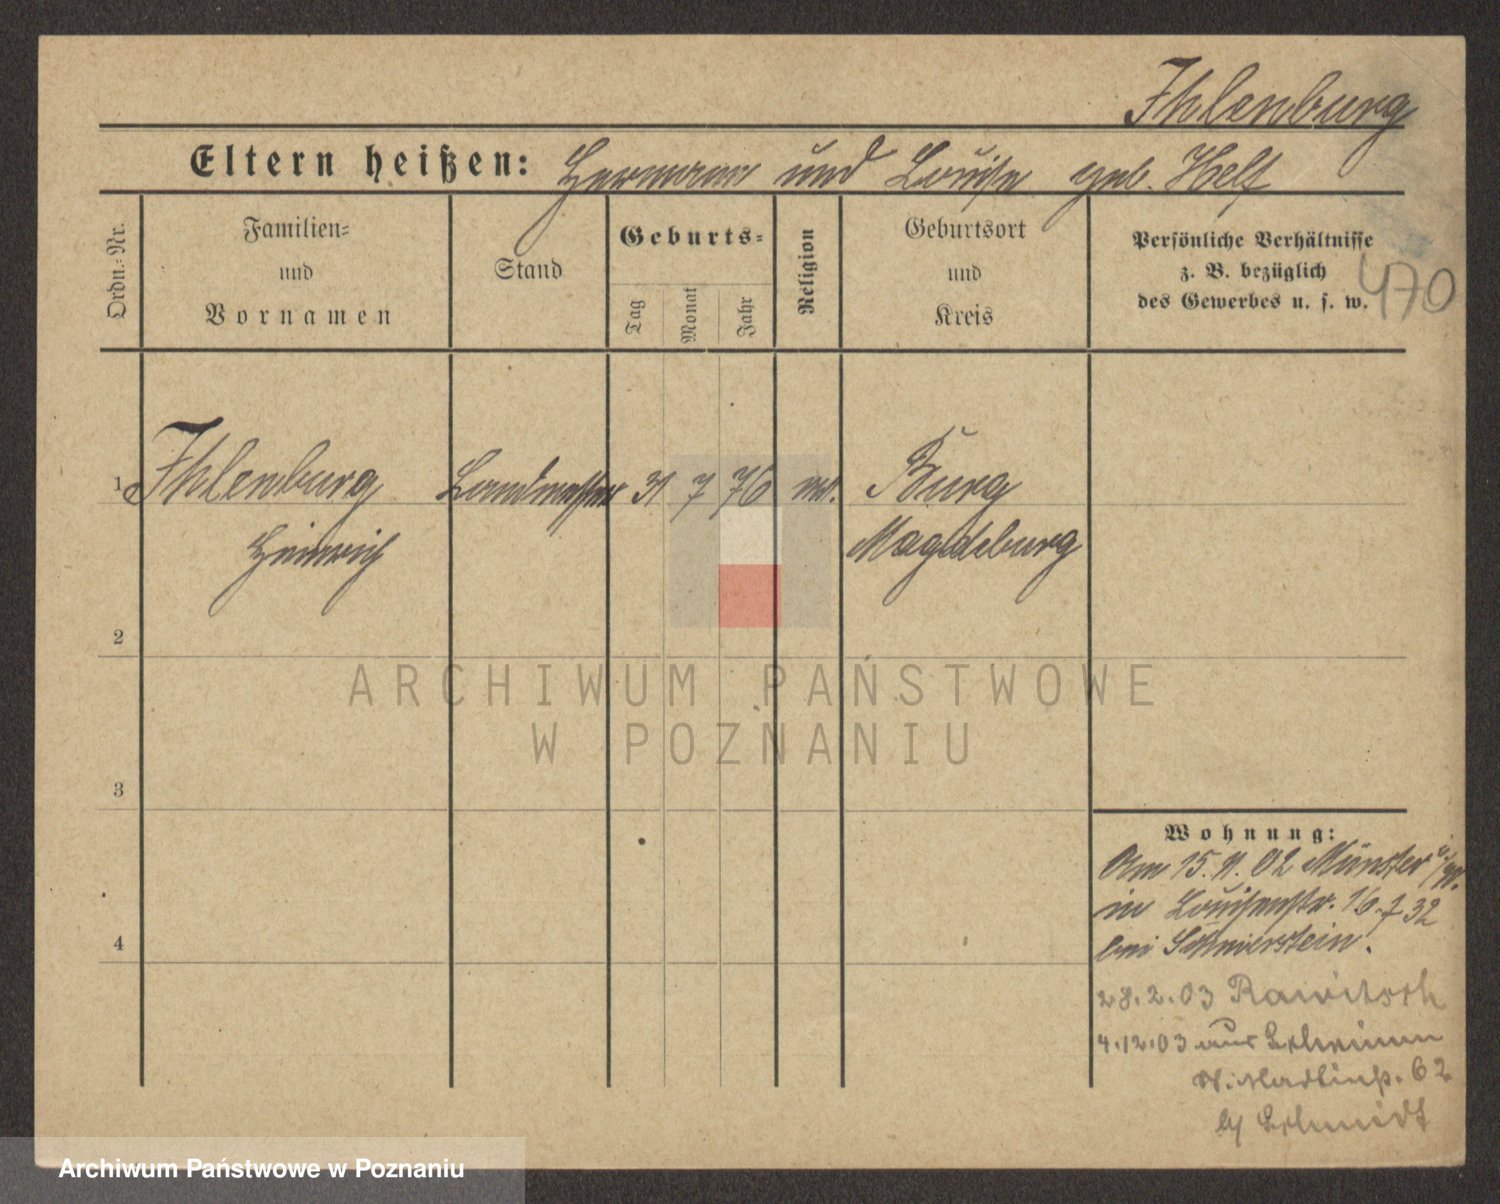 Ihlenburg
Eltern heißen: Hermann und Louise geb. Helf
Ordn.-Nr.
Familien-
und
Vornamen
Stand
Geburts-
Tag
Monat
Jahr
Religion
Geburtsort
und
Kreis
Persönliche Verhältnisse
z. B. bezüglich
des Gewerbes u. s. w.
470
1 Ihlenburg Landmesser 31 7 76 ev. Burg
Heinrich Magdeburg
2
3
4
Wohnung:
Am 15. 11. 02 Münster i/W.
in Louisenstr. 16. 7 32
bei Schmierstein.
28.2.03 Rawitsch
4.12.03 aus Schrimm
62
by Schmidt
ARCHIWUM PAŃSTWOWE
W POZNANIU
Archiwum Państwowe w Poznaniu